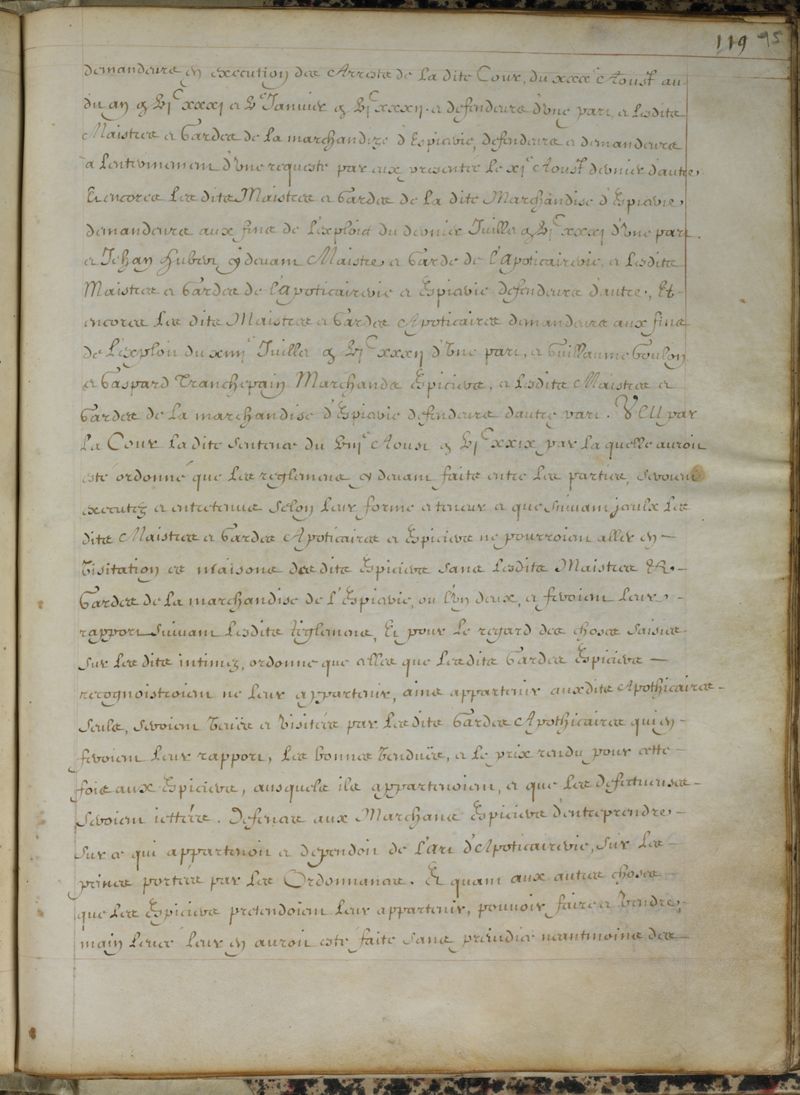 119 95
demandeurs en execution des Arrests de la dite Cour, du xxxe Aoust au
du an g vjc xxxj a ve Janvier g vjc xxxij. a defendeurs d'vne part, a lesdits
Maistres a Gardes de la marchandize d'Espicerie, defendeurs a demandeurs
a lenterinement d'vne requeste par eux presentee le xje Aoust dernier dautre
Et encores les dits Maistres a Gardes de la dite Marchandise d'Espicerie,
demandeurs aux fins de l'exploict du dernier Juillet g vjc xxxj d'vne part.
a Jehan cy devant Maistre a Garde de l'Apoticairerie, a lesdits
Maistres a Gardes de l'Apoticairerie a Espicerie defendeurs dautre, Et
encores les dits Maistres a Gardes Apoticaires demandeurs aux fins
de l'exploit du xiiije Juillet g vjc xxxij d'vne part, a Guillaume Goulon
a Gaspard Tranchepain Marchands Espiciers, a lesdits Maistres a
Gardes de la marchandise d'Espicerie defendeurs dautre part. Veu par
la Cour la dite sentence du viije Aoust g vjc xxix par la quelle auroit
esté ordonné que les reglemens cy devant faits entre les parties, seroient
executez a entretenus selon leur forme a teneur a que suivant iceulx les
dits Maistres a Gardes Apoticaires a Espiciers ne pourroient aller en
visitation es maisons desdits Espiciers sans lesdits Maistres &
Gardes de la marchandise de l'Espicerie, ou l'vn deux, a feroient leur
rapport suivant lesdits reglemens, Et pour le regard des choses saisies
sur les dits intimez, ordonne que celles que lesdits Gardes Espiciers
recognoistroient ne leur appartenir, ains appartenir ausdits Apothicaires
seuls, seroient veues a visitées par lesdits Gardes Apothicaires qui en
feroient leur rapport, les bonnes vendues, a le prix rendu pour cette
fois aux Espiciers, ausquels ils appartenoient, a que les defectueuses
seroient iettées. Defences aux Marchans Espiciers d'entreprendre
sur ce qui appartenoit a dependoit de l'art d'Apoticairerie, sur les
peines portees par les Ordonnances. Et quant aux autres choses
que les Espiciers pretendoient leur appartenir, pouvoir faire a vendre,
main levee leur en auroit esté faite sans preiudice neantmoins des